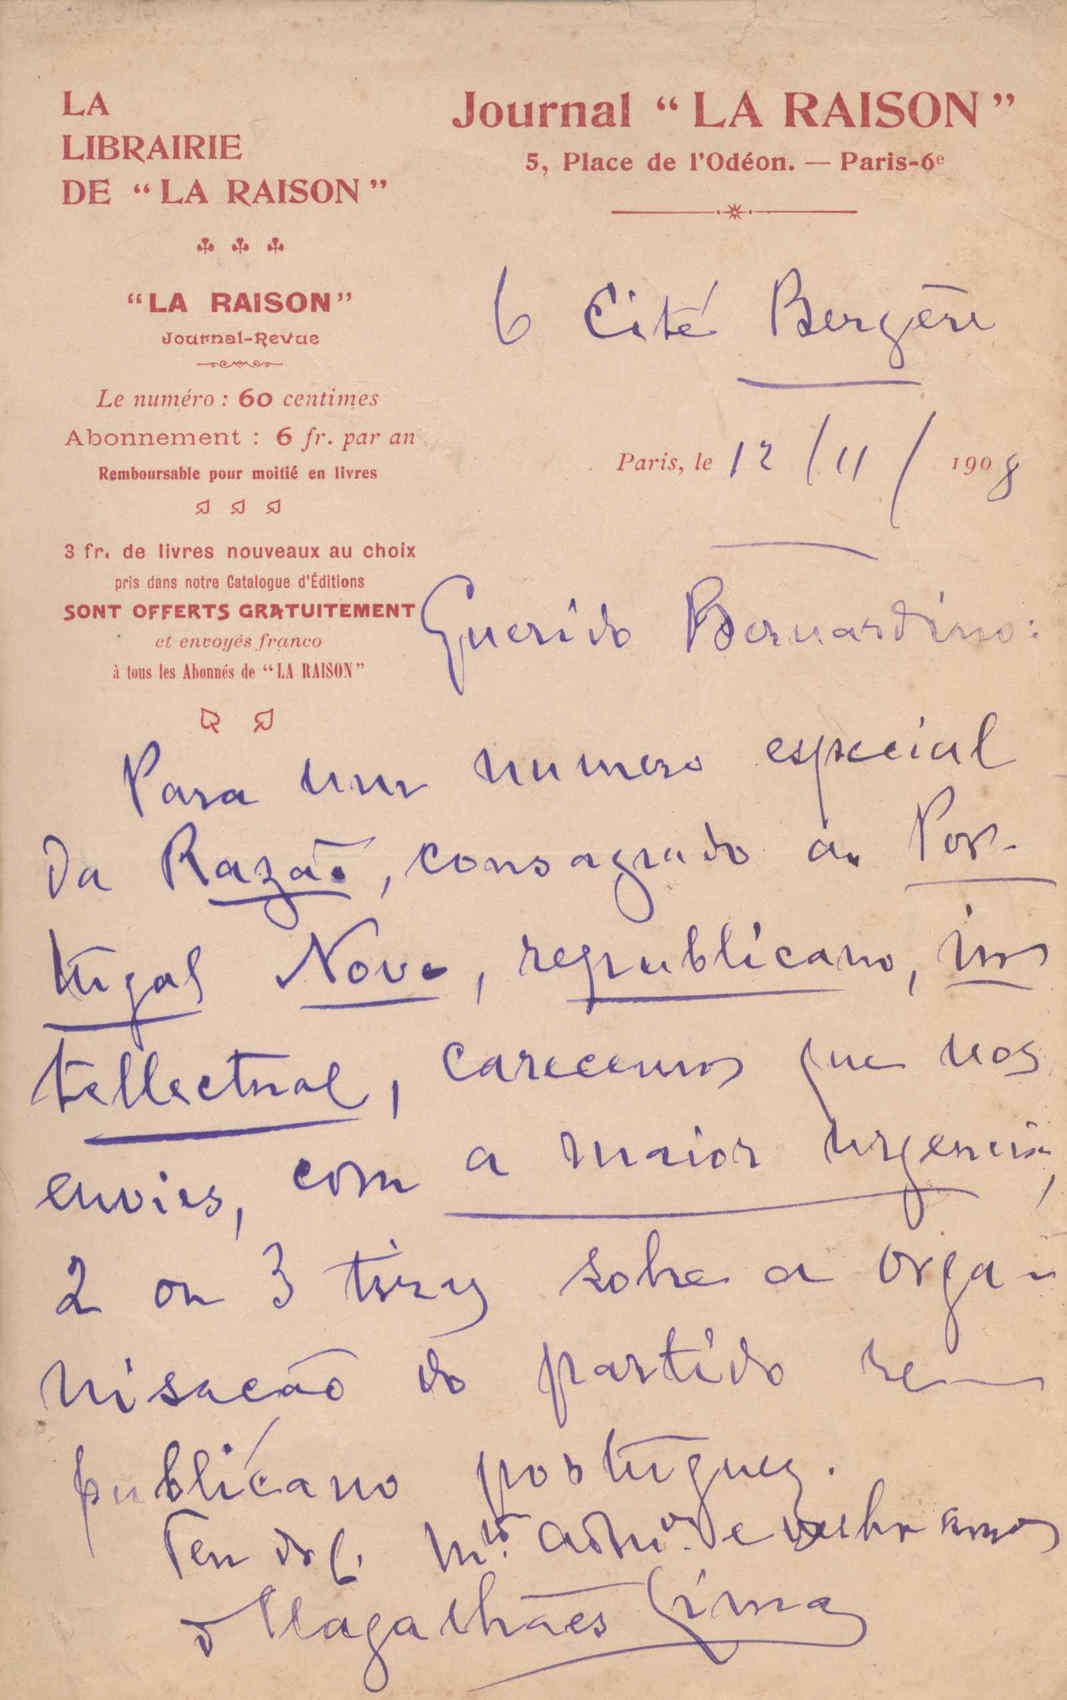 LA
LIBRAIRIE
DE “LA RAISON”
“LA RAISON”
Journal-Revue
Le numéro : 60 centimes
Abonnement : 6 fr. par an
Remboursable pour moitié en livres
3 fr. de livres nouveaux au choix
pris dans notre Catalogue d'Éditions
SONT OFFERTS GRATUITEMENT
et envoyés franco
à tous les Abonnés de “LA RAISON”
Journal “LA RAISON”
5, Place de l'Odéon. — Paris-6e
6 Cité Bergère
Paris, le 12/11/1908
Querido Bernardino:
Para um numero especial
da Razão, consagrado ao Por-
tugal Novo, republicano, in
tellectual, carecemos que nos
envies, com a maior urgencia,
2 ou 3 tiras sobre a orga-
nisacão do partido re-
publicano portuguez.
Teu do c. mto. admor. e velho amo
Magalhães Lima